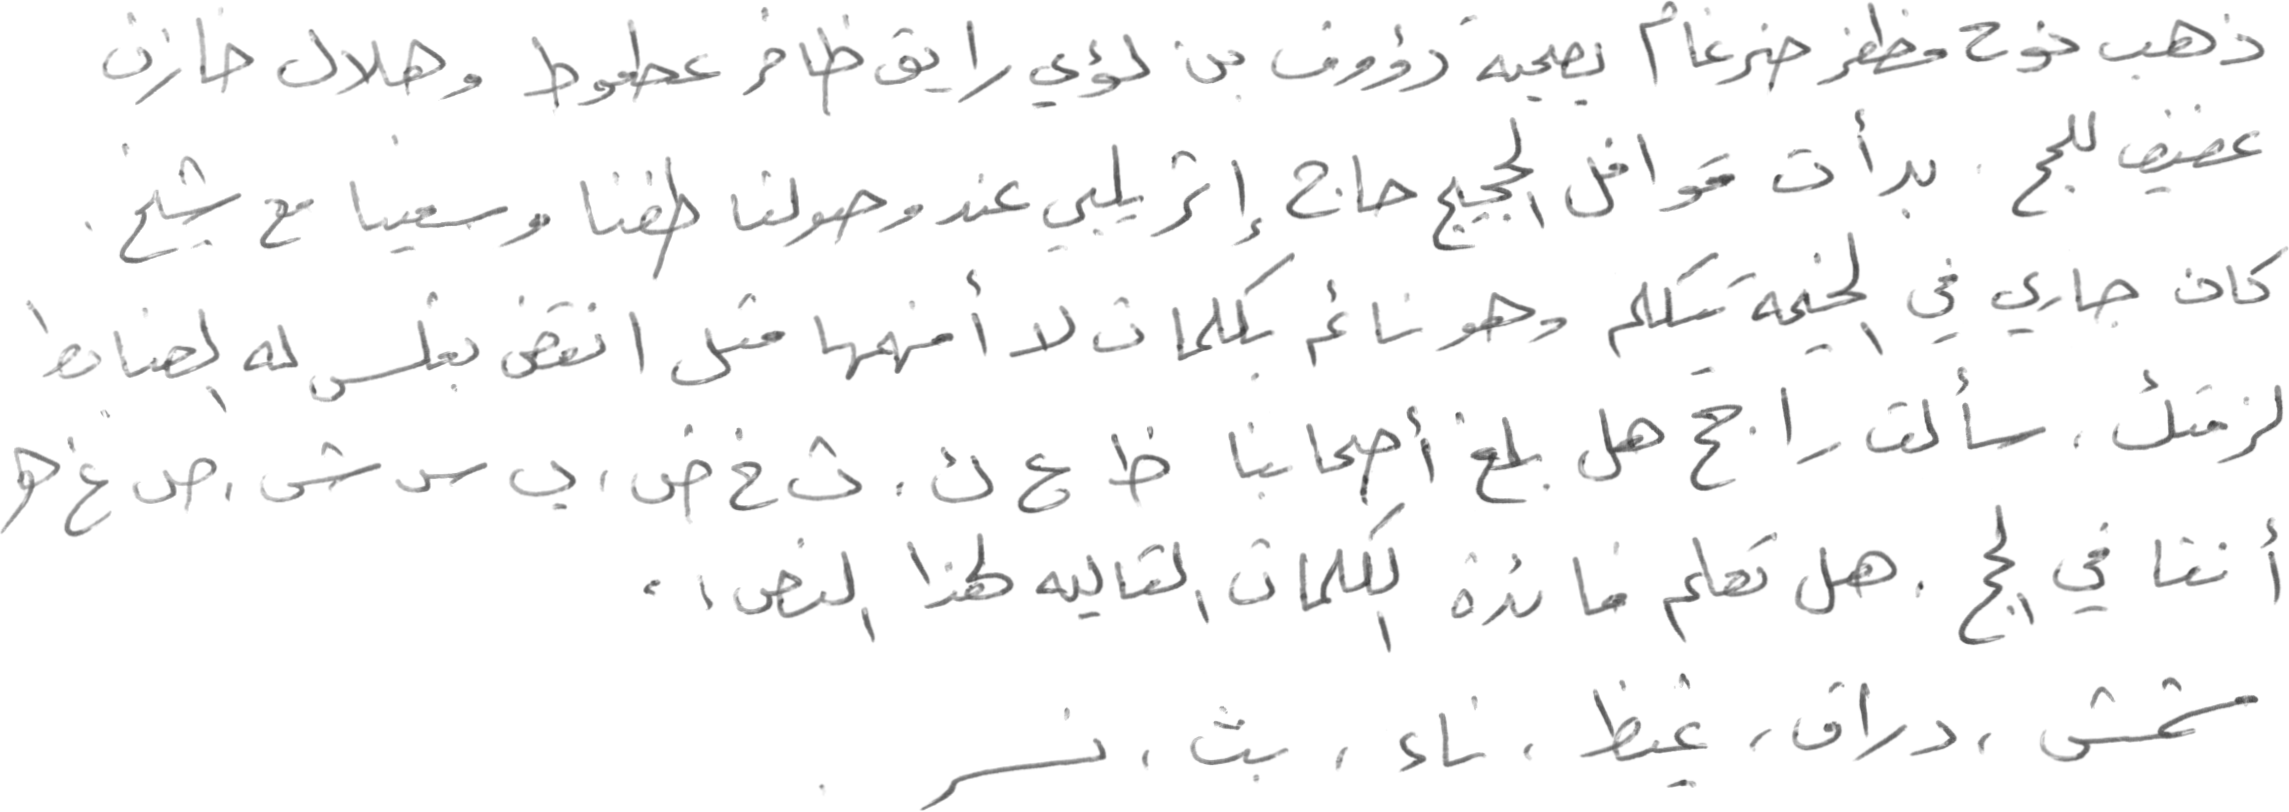 ذهب نوح مظفر ضرغام بصحبة رؤوف بن لؤي رايق ظافر عطعوط وهلال خازن
عفيف للحج. بدأت قوافل الحجيج حاج إثر يلبي عند وصولنا طفنا وسعينا مع شيخ.
كان جاري في الخيمة يتكلم وهو نائم بكلمات لا أفهمها مثل انقض بغلس له الضابط
لزمتك. سألت راجح هل بلغ أصحابنا ظ ع ن، ث خ ض، ب س ش، ص غ هو
أننا في الحج. هل تعلم فائدة الكلمات التالية لهذا النص:
مشمش، دراق، غيظ، ناء، بث، نسر.